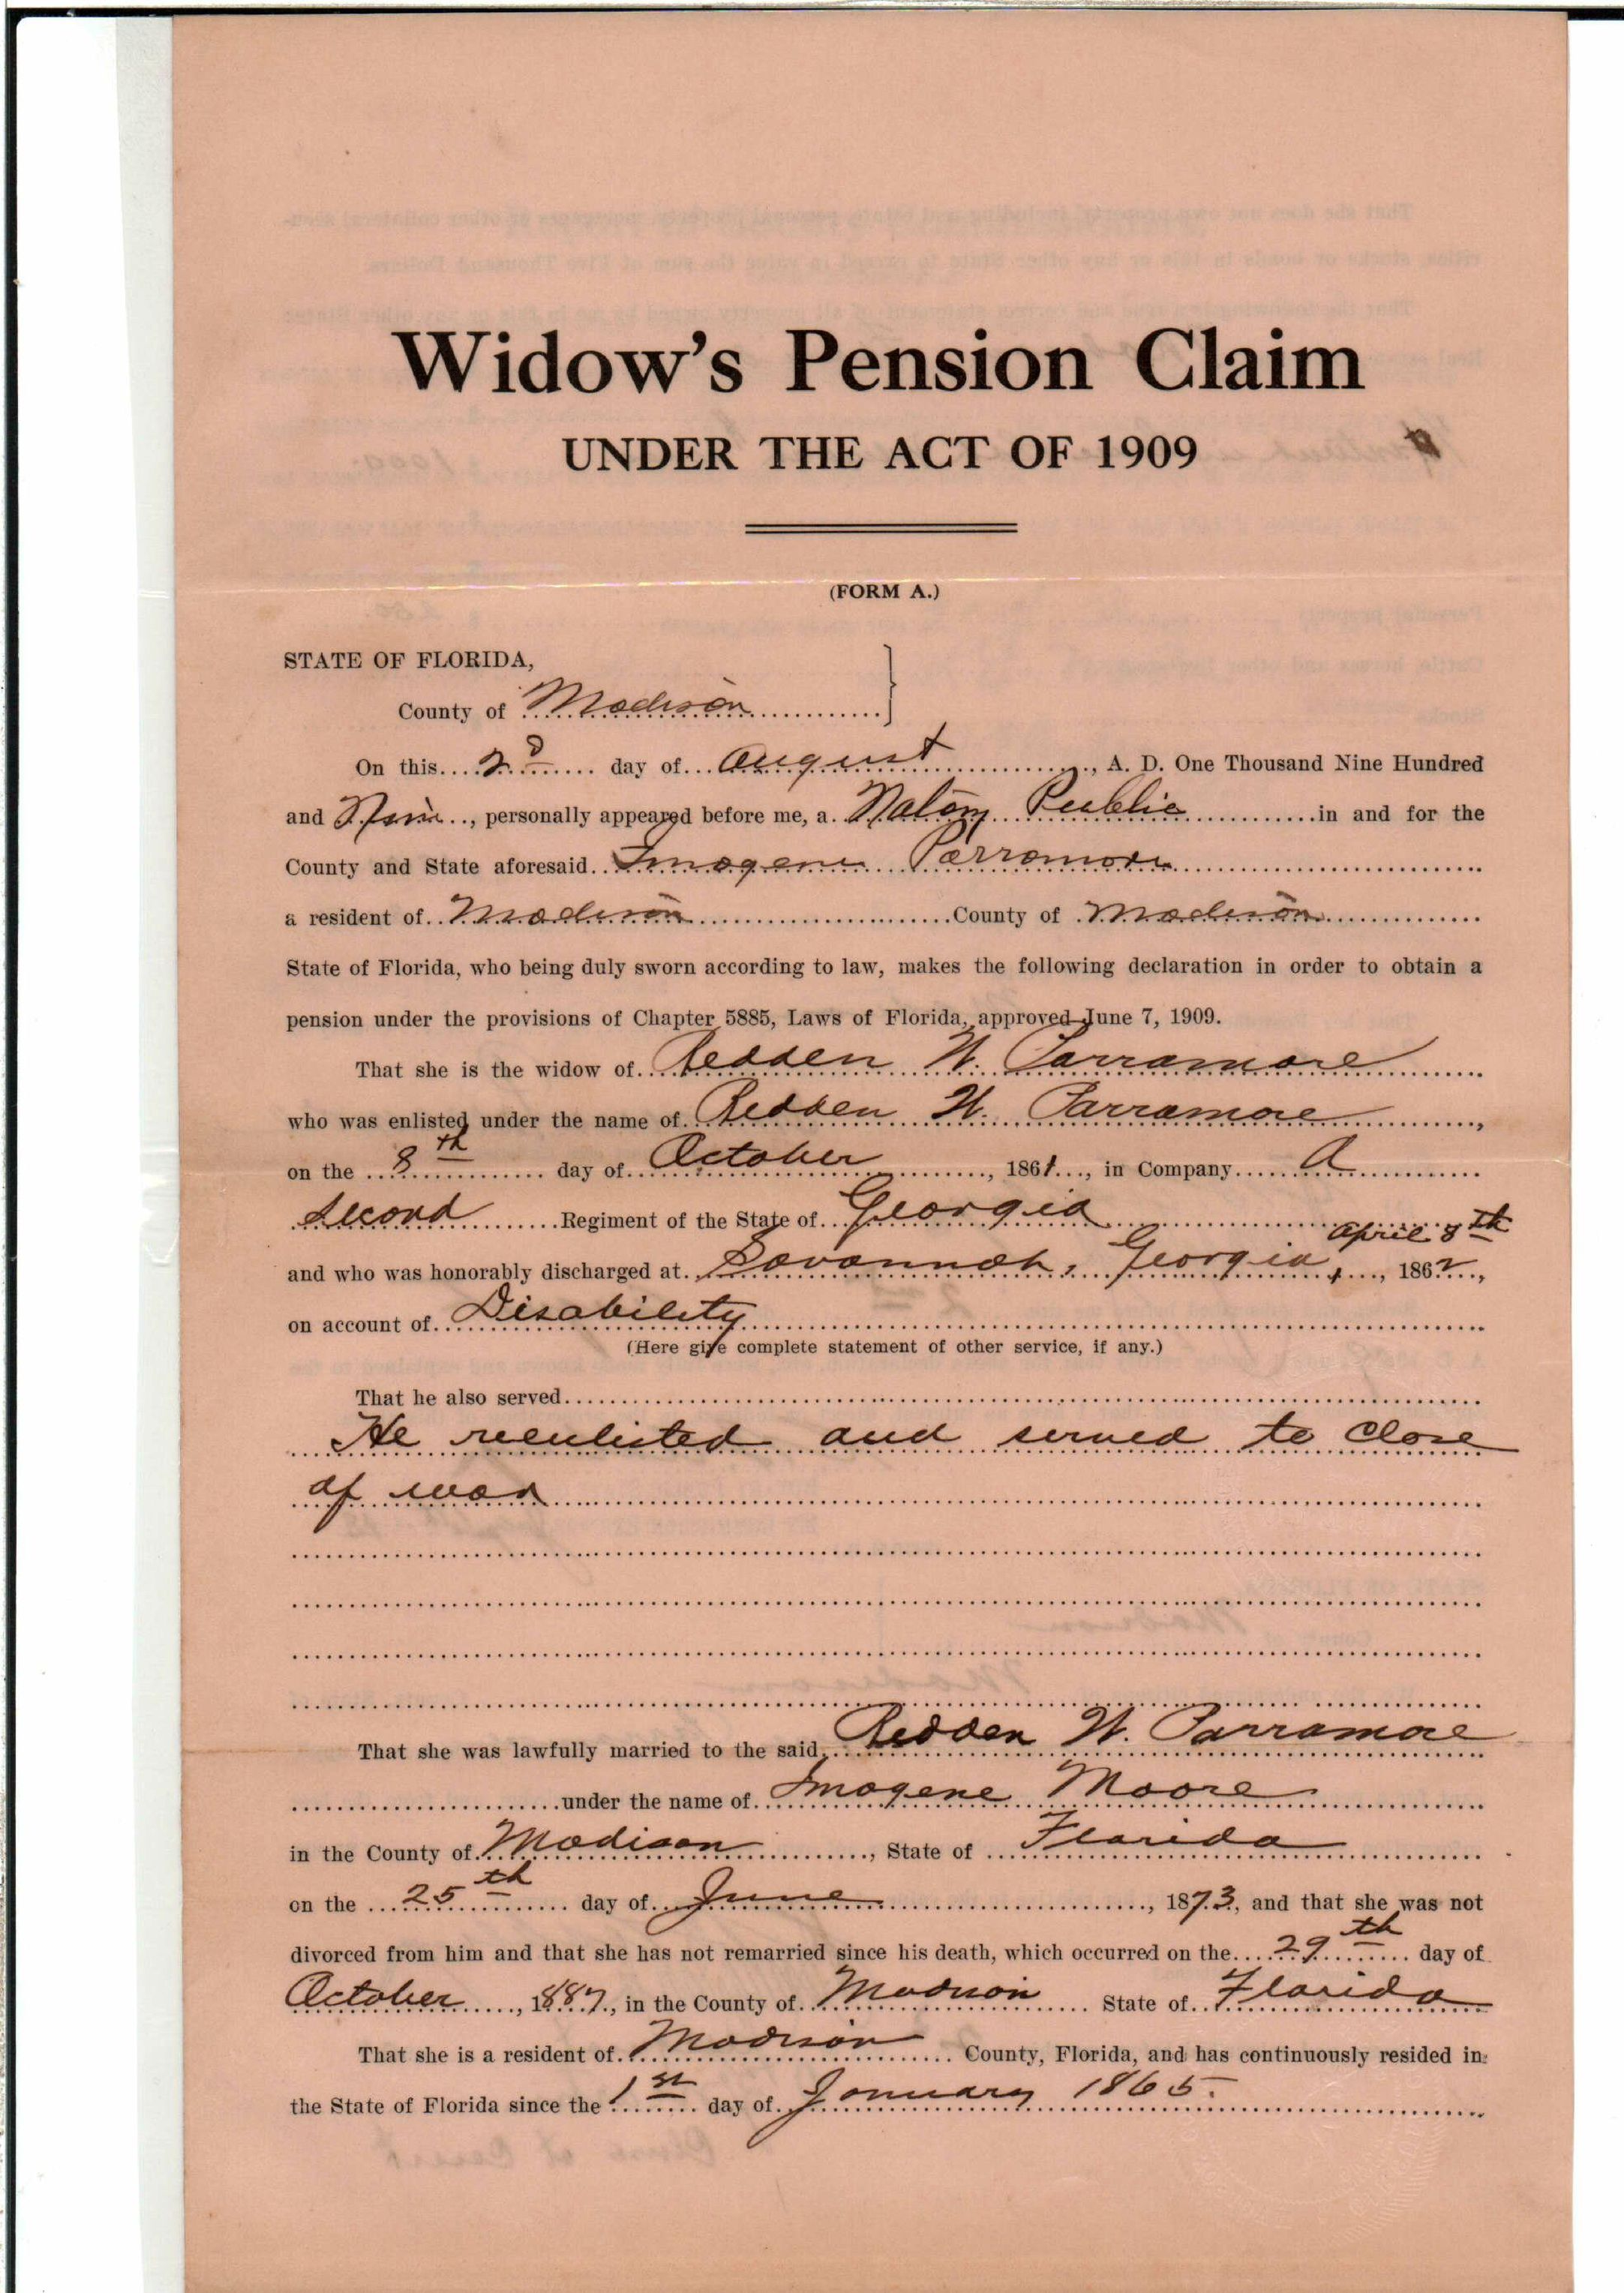 Widow's Pension Claim
UNDER THE ACT OF 1909
(FORM A.)
STATE OF FLORIDA,
County of Madison
On this 2d day of August, A. D. One Thousand Nine Hundred
and Nine, personally appeared before me, a Notary Public in and for the
County and State aforesaid Imogene Parramore
a resident of Madison County of Madison
State of Florida, who being duly sworn according to law, makes the following declaration in order to obtain a
pension under the provisions of Chapter 5885, Laws of Florida, approved June 7, 1909.
That she is the widow of Redden W. Parramore
who was enlisted under the name of Redden W. Parramore,
on the 8th day of October, 1861, in Company A
Second Regiment of the State of Georgia
and who was honorably discharged at Savannah, Georgia, April 8th, 1862,
on account of Disability
(Here give complete statement of other service, if any.)
That he also served
He reenlisted and served to close
of war
That she was lawfully married to the said Redden W. Parramore
under the name of Imogene Moore
in the County of Madison, State of Florida
on the 25th day of June, 1873, and that she was not
divorced from him and that she has not remarried since his death, which occurred on the 29th day of
October, 1887, in the County of Madison State of Florida
That she is a resident of Madison County, Florida, and has continuously resided in
the State of Florida since the 1st day of January 1865.